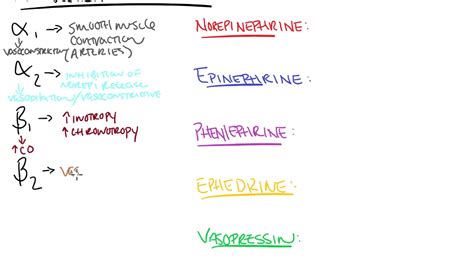 α₁ → SMOOTH MUSCLE
CONTRACTION
(ARTERIES)
VASOCONSTRICTION
α₂ → INHIBITION OF
NOREPI RELEASE
VASODILATION/VASOCONSTRICTIVE
β₁ → ↑ INOTROPY
↑ CHRONOTROPY
↑ CO
β₂ → VAS
NOREPINEPHRINE:
EPINEPHRINE:
PHENLEPHRINE:
EPHEDRINE:
VASOPRESSIN: